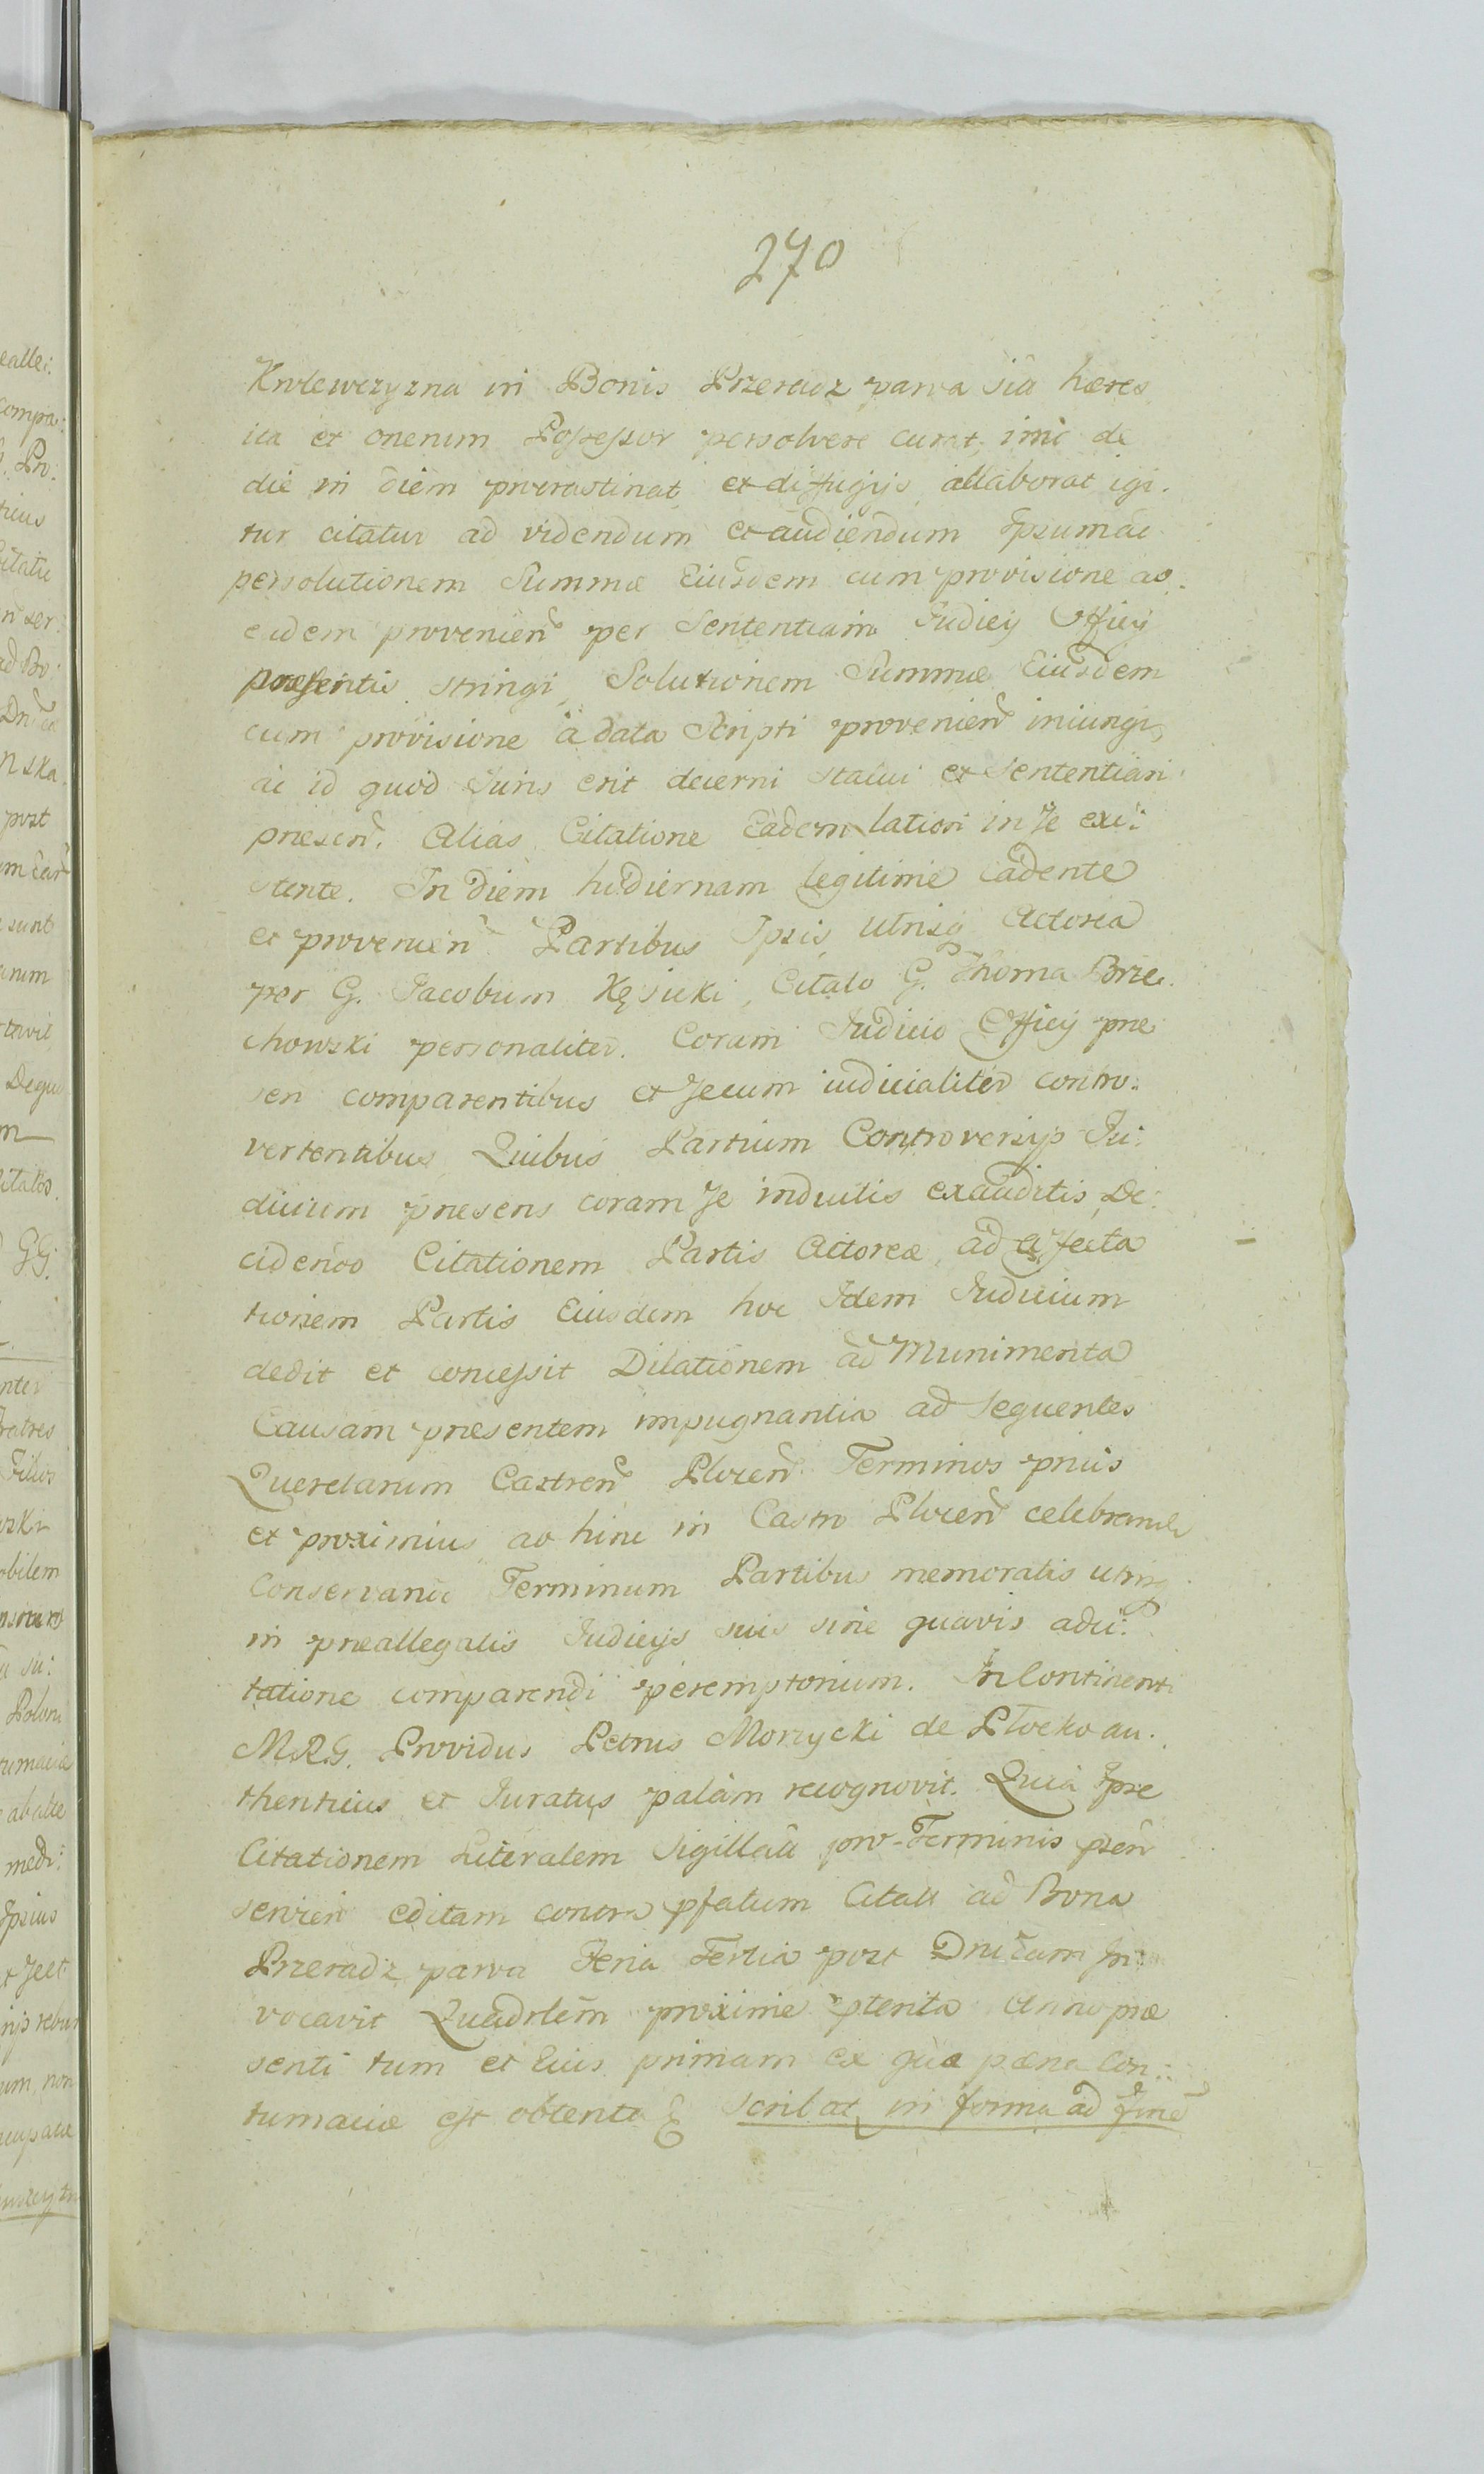 270
Krolewczyzna in Bonis Przeradz parva sia hæres
ita et onerum Possessor persolvere curat, imo de
die in diem procrastinat et diffugijs allaborat igi:
tur citatur ad videndum et audiendum Ipsum ac
persolutionem Summæ Eiusdem cum provisione ab
eadem provenien per Sententiam Iudicij Officij
præsentis stringi, Solutionem Summæ Eiusdem
cum provisione a data Scripti provenien iniungi,
ac id quod Iuris erit decerni statui et sententiari
præsen. Alias Citatione Eadem latiori in se exi:
stente. In diem hodiernam legitime cadente
et provenien Partibus Ipsis utrisq Actorea
per G. Iacobum Kęsicki, Citato G. Thoma Brze:
chowski personaliter. Coram Iudicio Officij præ
sen comparentibus et secum iudicialiter contro:
vertentibus Quibus Partium Controversijs Iu:
dicium præsens coram se inductis exauditis, De:
cidendo Citationem Partis Actoreæ, ad affecta
tionem Partis Eiusdem hoc Idem Iudicium
dedit et concessit Dilationem ad Munimenta
Causam præsentem impugnantia ad sequentes
Querelarum Castren Plocen Terminos prius
et proximius ab hinc in Castro Plocen celebrand
Conservando Terminum Partibus memoratis utrinq
in præallegatis Iudicijs suis sine quavis adci:
tatione comparendi peremptorium. In Continenti
MRG. Providus Petrus Morzycki de Plocko au:
thenticus et Iuratus palam recognovit. Quia Ipse
Citationem Literalem Sigillata pro Terminis psen
servien editam contra pfatum Citatt ad Bona
Przeradz parva Feria Tertia post Dnicam In:
vocavit Quadrlem proxime pterita Anno præ
senti tum et Eius primam ex qua pæna Con:
tumaciæ est obtenta & scribat in forma ad fine